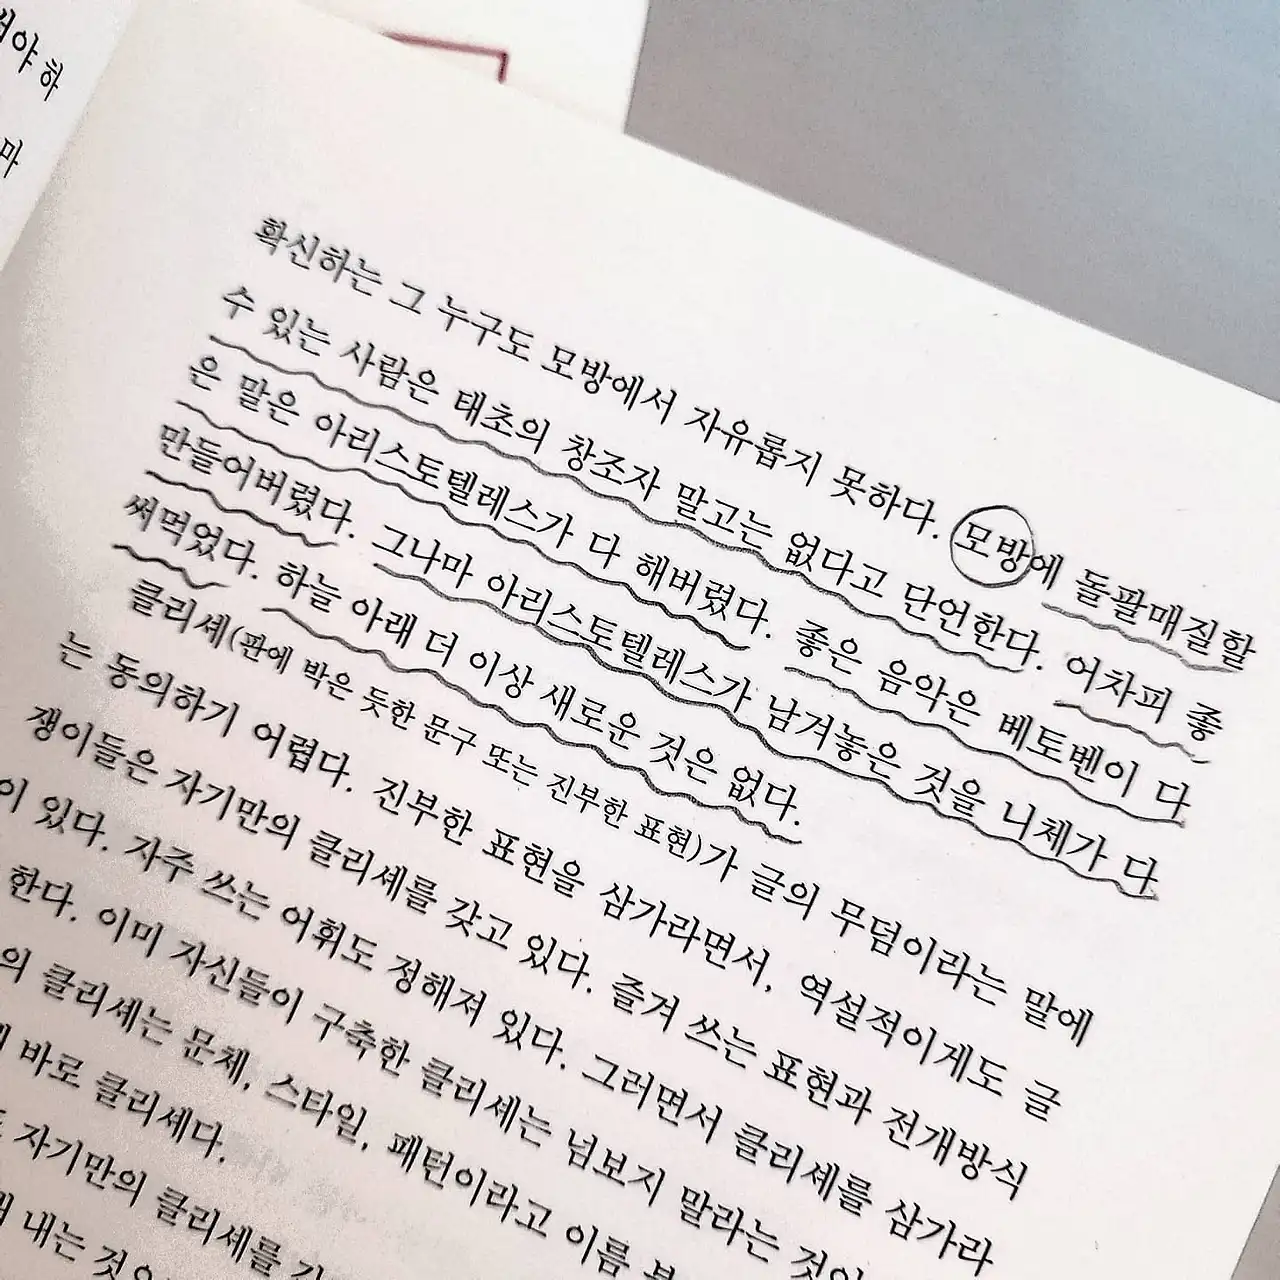 써야 하
마
확신하는 그 누구도 모방에서 자유롭지 못하다. 모방에 돌팔매질할
수 있는 사람은 태초의 창조자 말고는 없다고 단언한다. 어차피 좋
은 말은 아리스토텔레스가 다 해버렸다. 좋은 음악은 베토벤이 다
만들어버렸다. 그나마 아리스토텔레스가 남겨놓은 것을 니체가 다
써먹었다. 하늘 아래 더 이상 새로운 것은 없다.
클리셰(판에 박은 듯한 문구 또는 진부한 표현)가 글의 무덤이라는 말에
는 동의하기 어렵다. 진부한 표현을 삼가라면서, 역설적이게도 글
쟁이들은 자기만의 클리셰를 갖고 있다. 즐겨 쓰는 표현과 전개방식
이 있다. 자주 쓰는 어휘도 정해져 있다. 그러면서 클리셰를 삼가라
한다. 이미 자신들이 구축한 클리셰는 넘보지 말라는 것이
의 클리셰는 문체, 스타일, 패턴이라고 이름
바로 클리셰다.
자기만의 클리셰를
내는 것